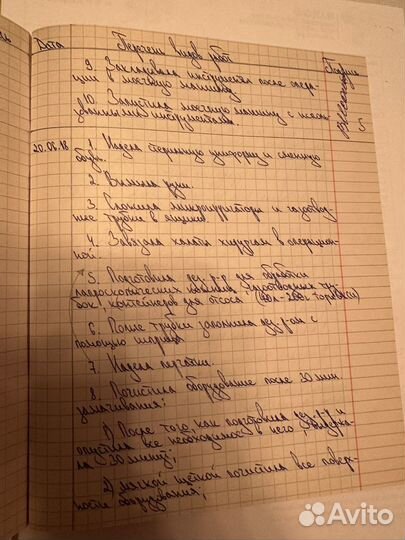 Дата
Перечень видов работ
9. Закладывала инструменты после опера-
ции в моечную машину
10. Запустила моечную машину с исполь-
зованными инструментами.
5
20.06.18
1. Надела стерильную униформу и сменную
обувь.
2. Вымыла руки.
3. Сложила микроирригаторы и газоотвод-
ные трубки в ящики.
4. Завязала халаты хирургам в операцион-
ной.
5. Подготовила дез. р-р для обработки
лапароскопических газоотводных тру-
бок, контейнеров для отсоса
6. Полые трубки заполнила дез. р-ом с
помощью шприца
7. Надела перчатки.
8. Почистила оборудование после 30 мин
замачивания:
1) После того, как подготовила дез. р-р и
опустила все необходимое в него, выдержа-
ла 30 минут;
2) мягкой щёткой почистила все повер-
хности оборудования;
Avito